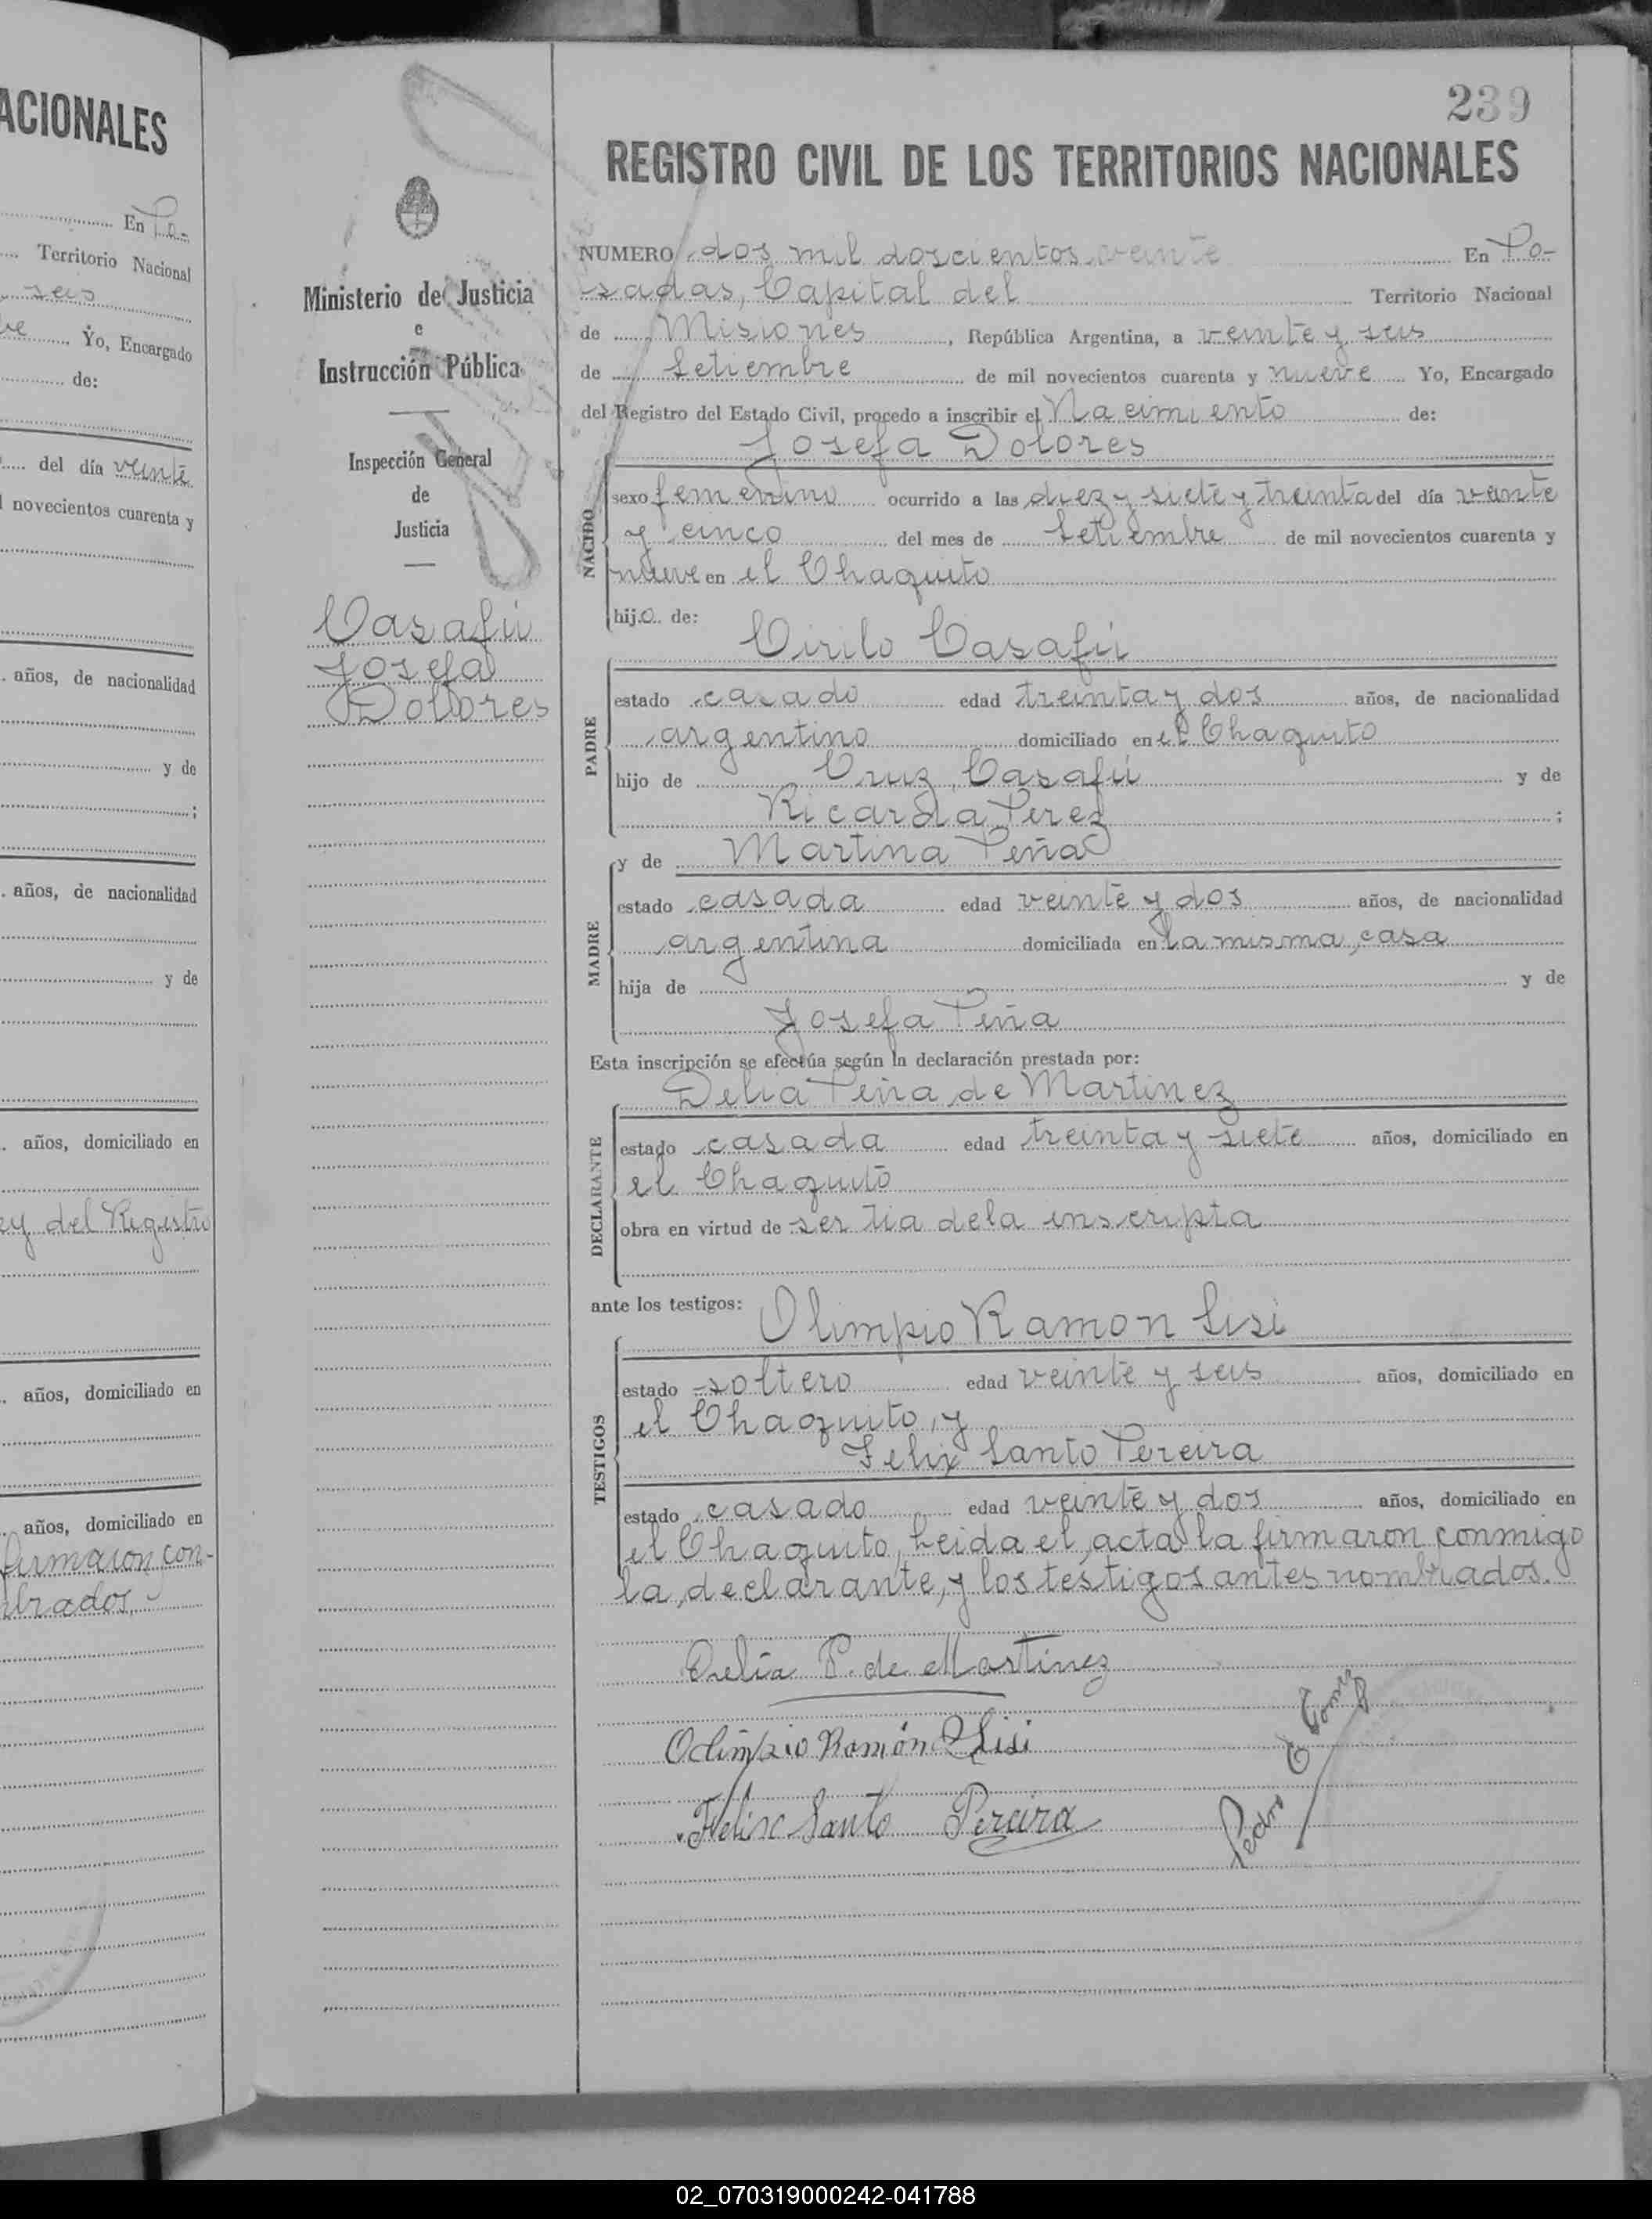 ACIONALES
En Po-
Territorio Nacional
seis
Yo, Encargado
de:
del día veinte
novecientos cuarenta y
años, de nacionalidad
y de
;
años, de nacionalidad
y de
años, domiciliado en
ey del Registro
años, domiciliado en
años, domiciliado en
firmaron con-
brados.
Ministerio de Justicia
e
Instrucción Pública
Inspección General
de
Justicia
Casafú
Josefa
Dolores
239
REGISTRO CIVIL DE LOS TERRITORIOS NACIONALES
NUMERO dos mil doscientos veinte En Po-
sadas, Capital del Territorio Nacional
de Misiones, República Argentina, a veinte y seis
de Setiembre de mil novecientos cuarenta y nueve Yo, Encargado
del Registro del Estado Civil, procedo a inscribir el Nacimiento de:
Josefa Dolores
NACIDO
sexo femenino ocurrido a las diez y siete y treinta del día veinte
y cinco del mes de Setiembre de mil novecientos cuarenta y
nueve en el Chaquito
hija de:
Cirilo Casafú
PADRE
estado casado edad treinta y dos años, de nacionalidad
argentino domiciliado en el Chaquito
hijo de Cruz Casafú y de
Ricarda Perez ;
y de Martina Peña
MADRE
estado casada edad veinte y dos años, de nacionalidad
argentina domiciliada en la misma casa
hija de y de
Josefa Peña
Esta inscripción se efectúa según la declaración prestada por:
Delia Peña de Martinez
DECLARANTE
estado casada edad treinta y siete años, domiciliado en
el Chaquito
obra en virtud de ser tia dela inscripta
ante los testigos:
Olimpio Ramon Lisi
TESTIGOS
estado soltero edad veinte y seis años, domiciliado en
el Chaquito, y
Felix Santo Pereira
estado casado edad veinte y dos años, domiciliado en
el Chaquito, Leida el acta la firmaron conmigo
la declarante, y los testigos antes nombrados.
Delia P. de Martinez
Olimpio Ramón Lisi
Felix Santo Pereira
Pedro G Gomez
02_070319000242-041788